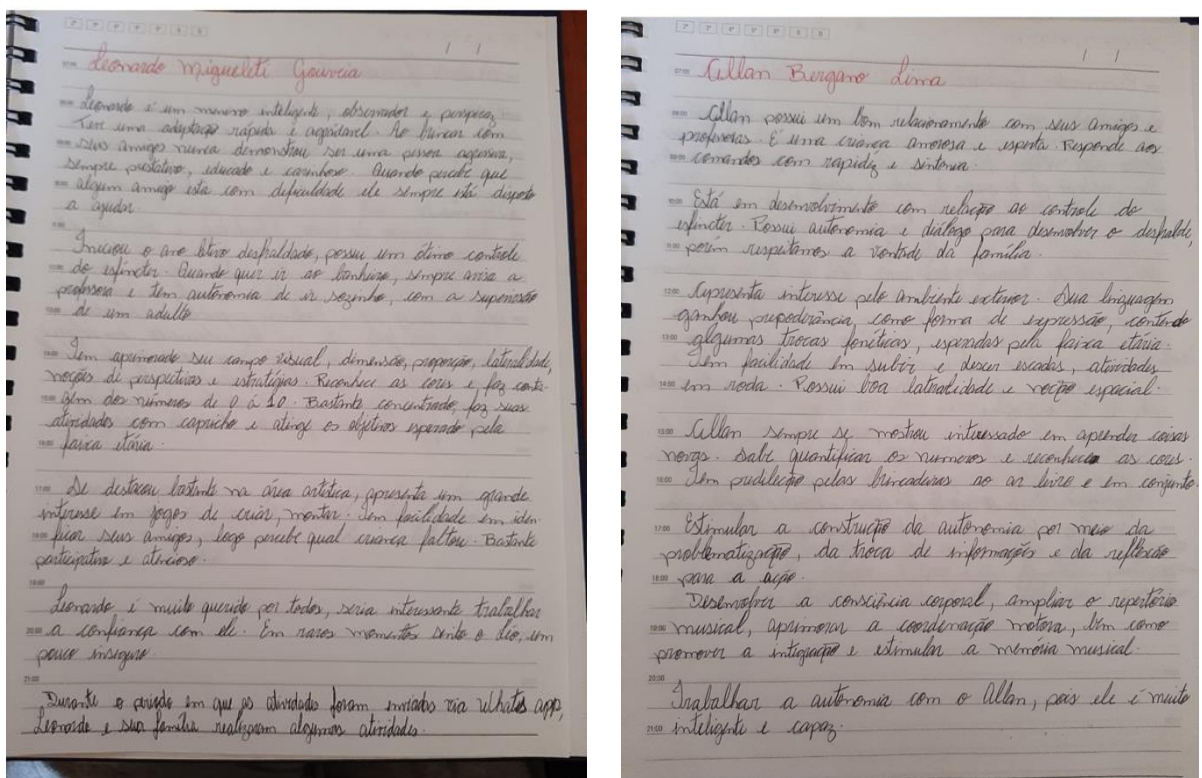 Leonardo Migueleti Gouveia
Leonardo é um menino inteligente, observador e perspicaz,
Teve uma adaptação rápida e agradável. Ao brincar com
seus amigos nunca demonstrou ser uma pessoa agressiva,
sempre prestativo, educado e carinhoso. Quando percebe que
algum amigo esta com dificuldade ele sempre está disposto
a ajudar.
Iniciou o ano letivo desfraldado, possui um ótimo controle
do esfincter. Quando quer ir ao banheiro, sempre avisa a
professora e tem autonomia de ir sozinho, com a supervisão
de um adulto
Tem aprimorado seu campo visual, dimensão, proporção, lateralidade,
noções de perspectivas e estratégias. Reconhece as cores e faz conta-
gem dos números de 0 á 10. Bastante concentrado, faz suas
atividades com capricho e atinge os objetivos esperado pela
faixa etária.
Se destacou bastante na área artística, apresenta um grande
interesse em jogos de criar, montar. Tem facilidade em iden-
ficar seus amigos, logo percebe qual criança faltou. Bastante
participativo e atencioso.
Leonardo é muito querido por todos, seria interessante trabalhar
a confiança com ele. Em raros momentos sinto o Léo, um
pouco inseguro.
Durante o periodo em que as atividades foram enviadas via Whats app,
Leonardo e sua família realizaram algumas atividades.
Allan Bergano Lima
Allan possui um bom relacionamento com seus amigos e
professoras. É uma criança amorosa e esperta. Responde aos
comandos com rapidêz e sintonia.
Está em desenvolvimento com relação ao controle do
esfincter. Possui autonomia e diálogo para desenvolver o desfralde,
porém respeitamos a vontade da família.
Apresenta interesse pelo ambiente exterior. Sua linguagem
ganhou prepoderância, como forma de expressão, contendo
algumas trocas fonéticas, esperadas pela faixa etária.
Tem facilidade em subir e descer escadas, atividades
em roda. Possui boa latratidade e noção espacial.
Allan sempre se mostrou interessado em aprender coisas
novas. Sabe quantificar os numeros e reconhece as cores.
Tem predileção pelas brincadeiras ao ar livre e em conjunto.
Estimular a construção da autonomia por meio da
problematização, da troca de informações e da reflexão
para a ação.
Desenvolver a consciência corporal, ampliar o repertório
musical, aprimorar a coordenação motora, bem como
promover a integração e estimular a memória musical.
Trabalhar a autonomia com o Allan, pois ele é muito
inteligente e capaz.